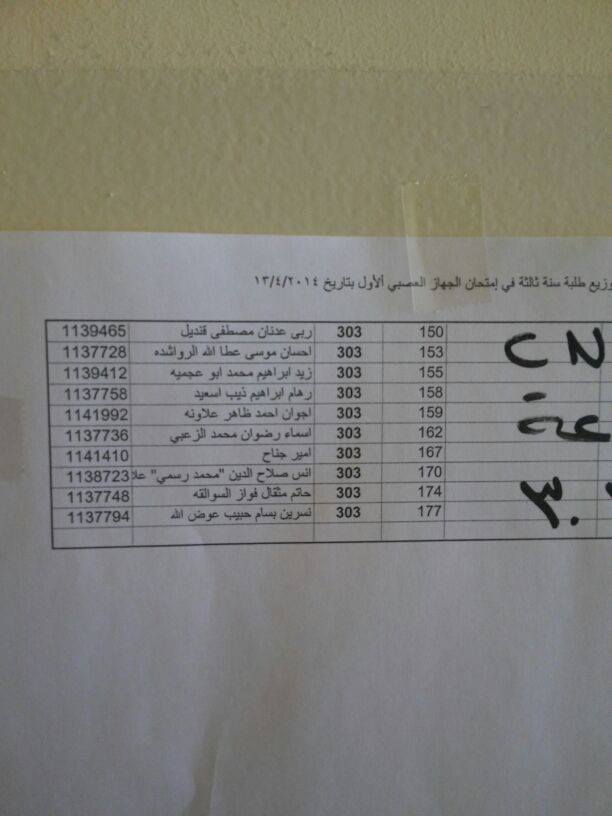 توزيع طلبة سنة ثالثة في إمتحان الجهاز العصبي الأول بتاريخ ١٣/٤/٢٠١٤
150 303 ربى عدنان مصطفى قنديل 1139465
153 303 احسان موسى عطا الله الرواشده 1137728
155 303 زيد ابراهيم محمد ابو عجميه 1139412
158 303 رهام ابراهيم ذيب اسعيد 1137758
159 303 اجوان احمد ظاهر علاونه 1141992
162 303 اسماء رضوان محمد الزعبي 1137736
167 303 امير جناح 1141410
170 303 انس صلاح الدين "محمد رسمي" علا 1138723
174 303 حاتم مثقال فواز السوالقه 1137748
177 303 نسرين بسام حبيب عوض الله 1137794